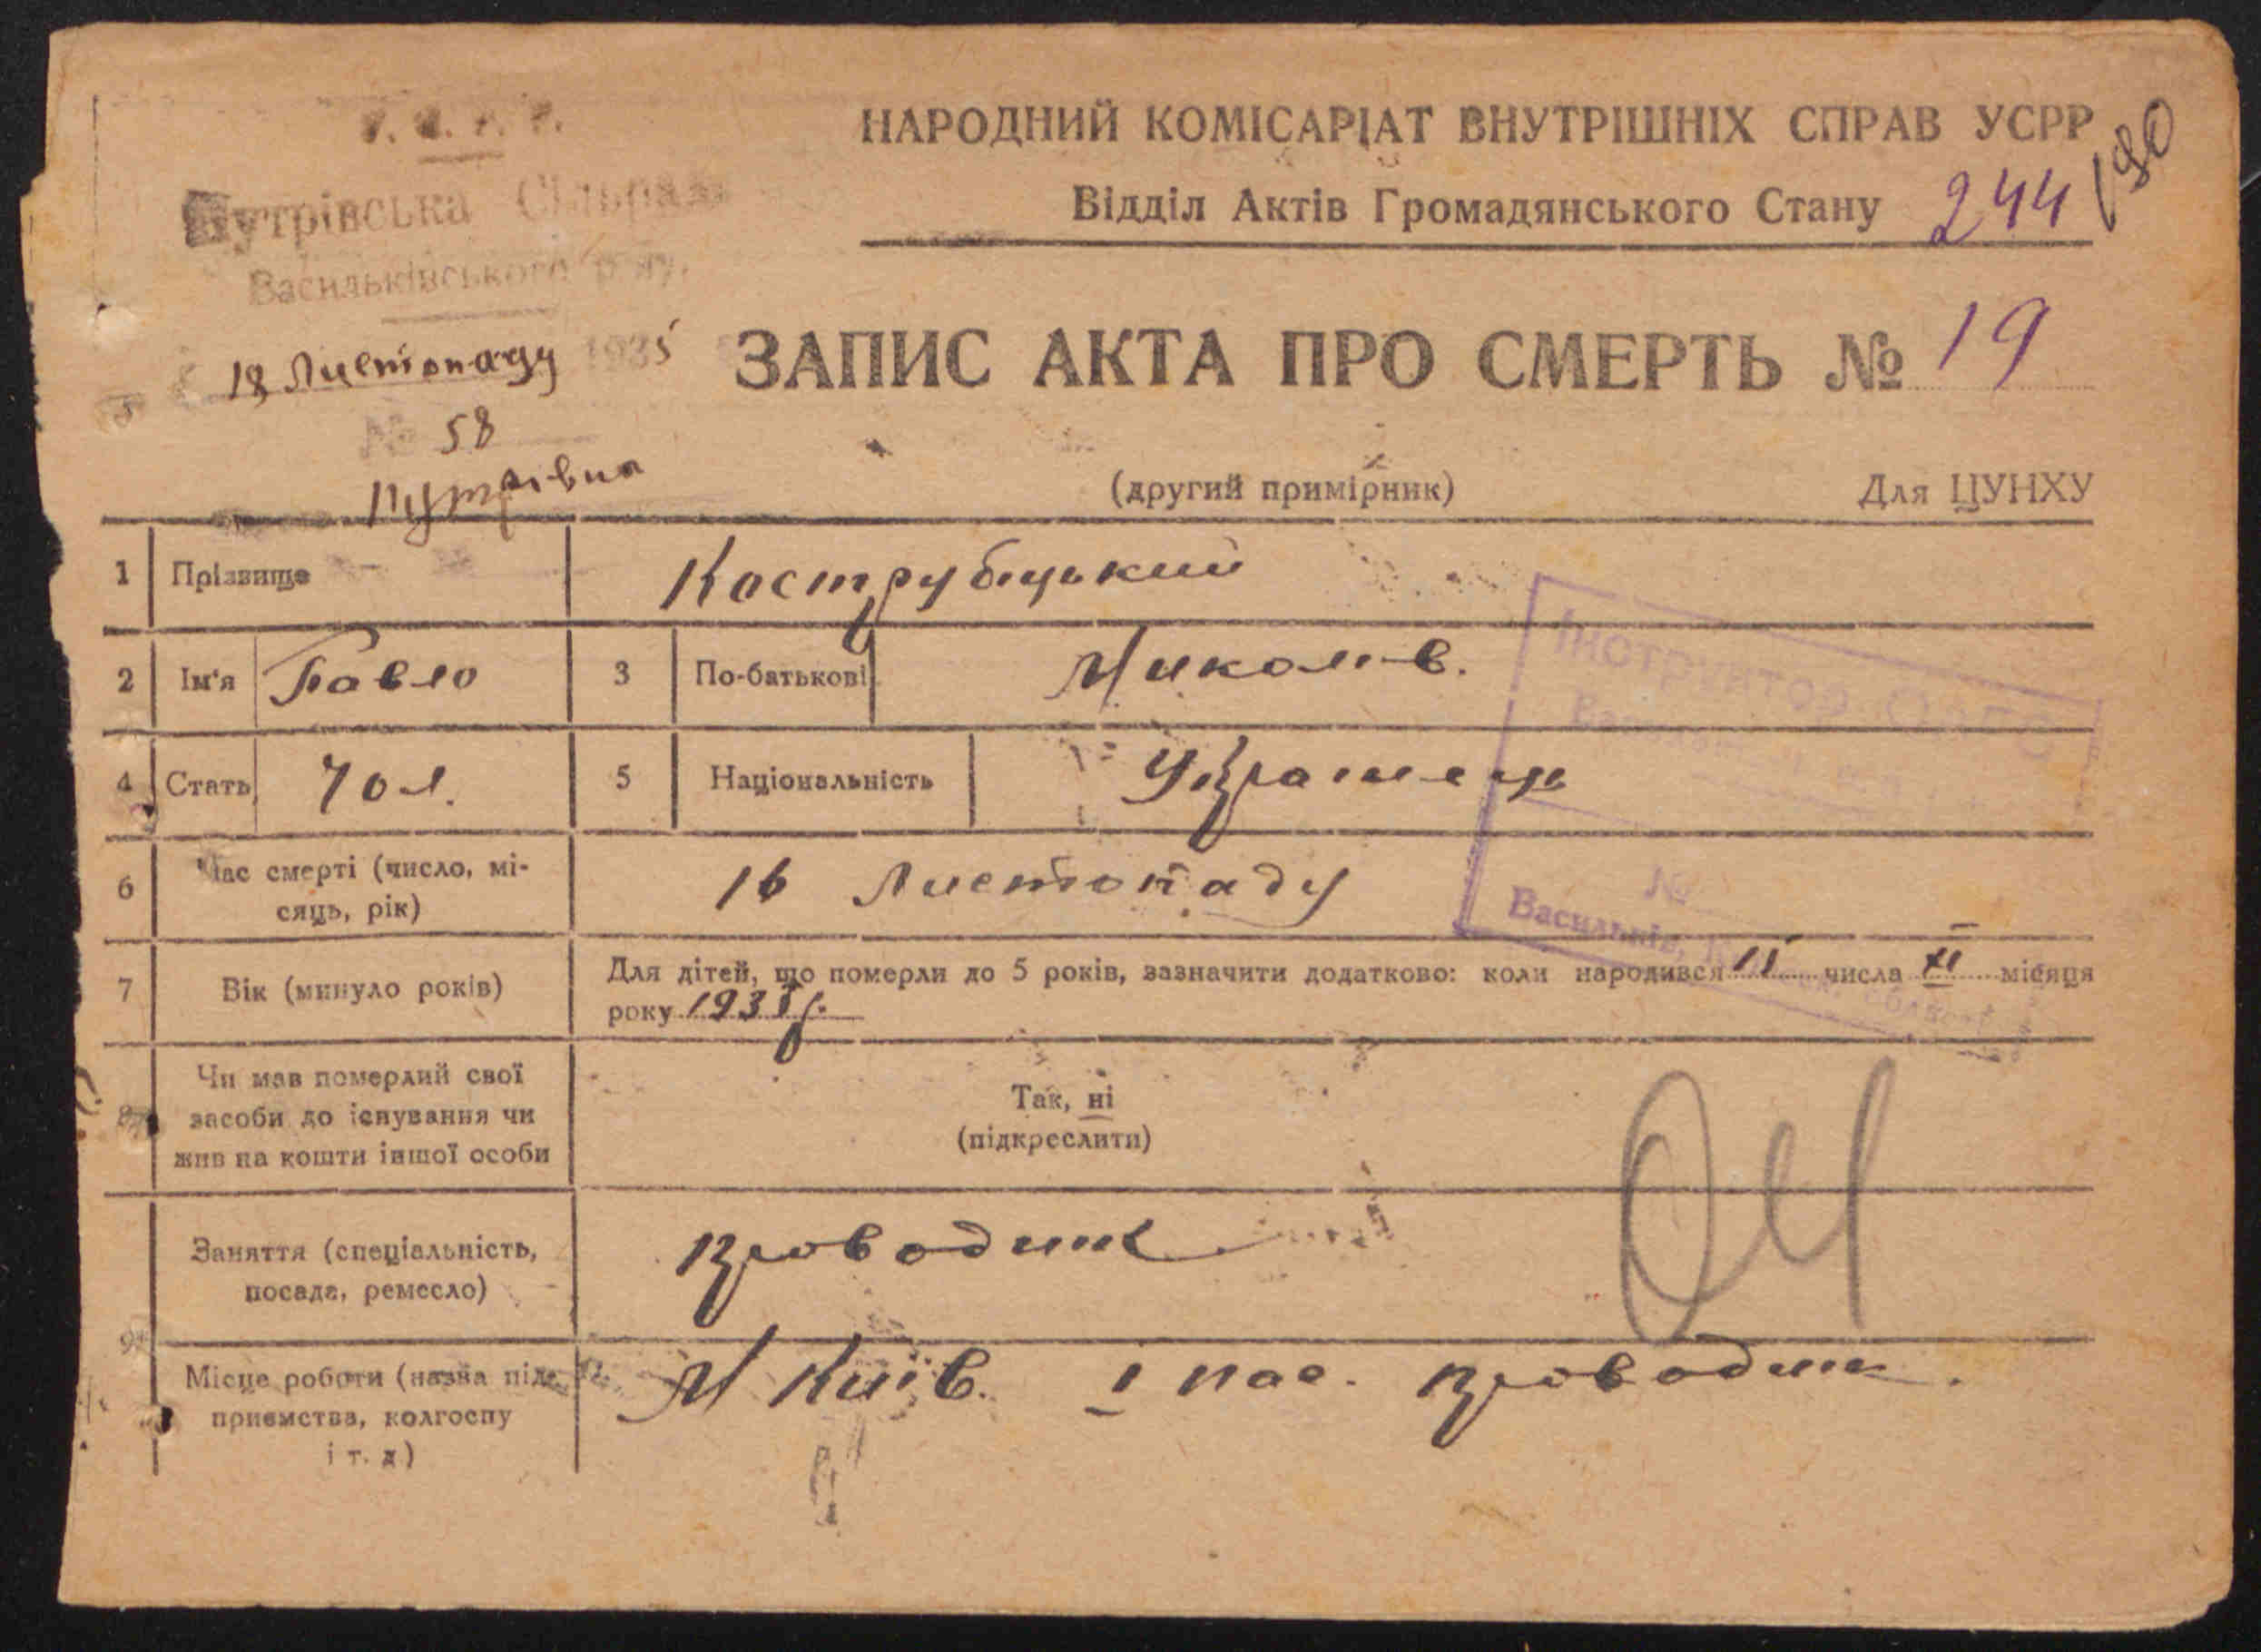 У. С. Р. Р.
Путрівська Сільрада
Васильківського р-ну.
18 Листопаду 1935
№ 58
Путрівка
НАРОДНИЙ КОМІСАРІАТ ВНУТРІШНІХ СПРАВ УСРР
Відділ Актів Громадянського Стану 244
ЗАПИС АКТА ПРО СМЕРТЬ № 19
(другий примірник) Для ЦУНХУ
1 Прізвище Кострубіцький
2 Ім'я Павло 3 По-батькові Микол-в.
4 Стать Чол. 5 Національність Українець
6 Час смерті (число, мі-
сяць, рік) 16 Листопаду
7 Вік (минуло років) Для дітей, що померли до 5 років, зазначити додатково: коли народився числа XI місяця
року 1935 р.
8 Чи мав померлий свої
засоби до існування чи
жив на кошти іншої особи
Так, ні
(підкреслити)
9 Заняття (спеціальність,
посада, ремесло) проводник
Місце роботи (назва під-
приємства, колгоспу
і т. д)
М Київ. І пас. проводник.
Інструктор
№
Васильків,